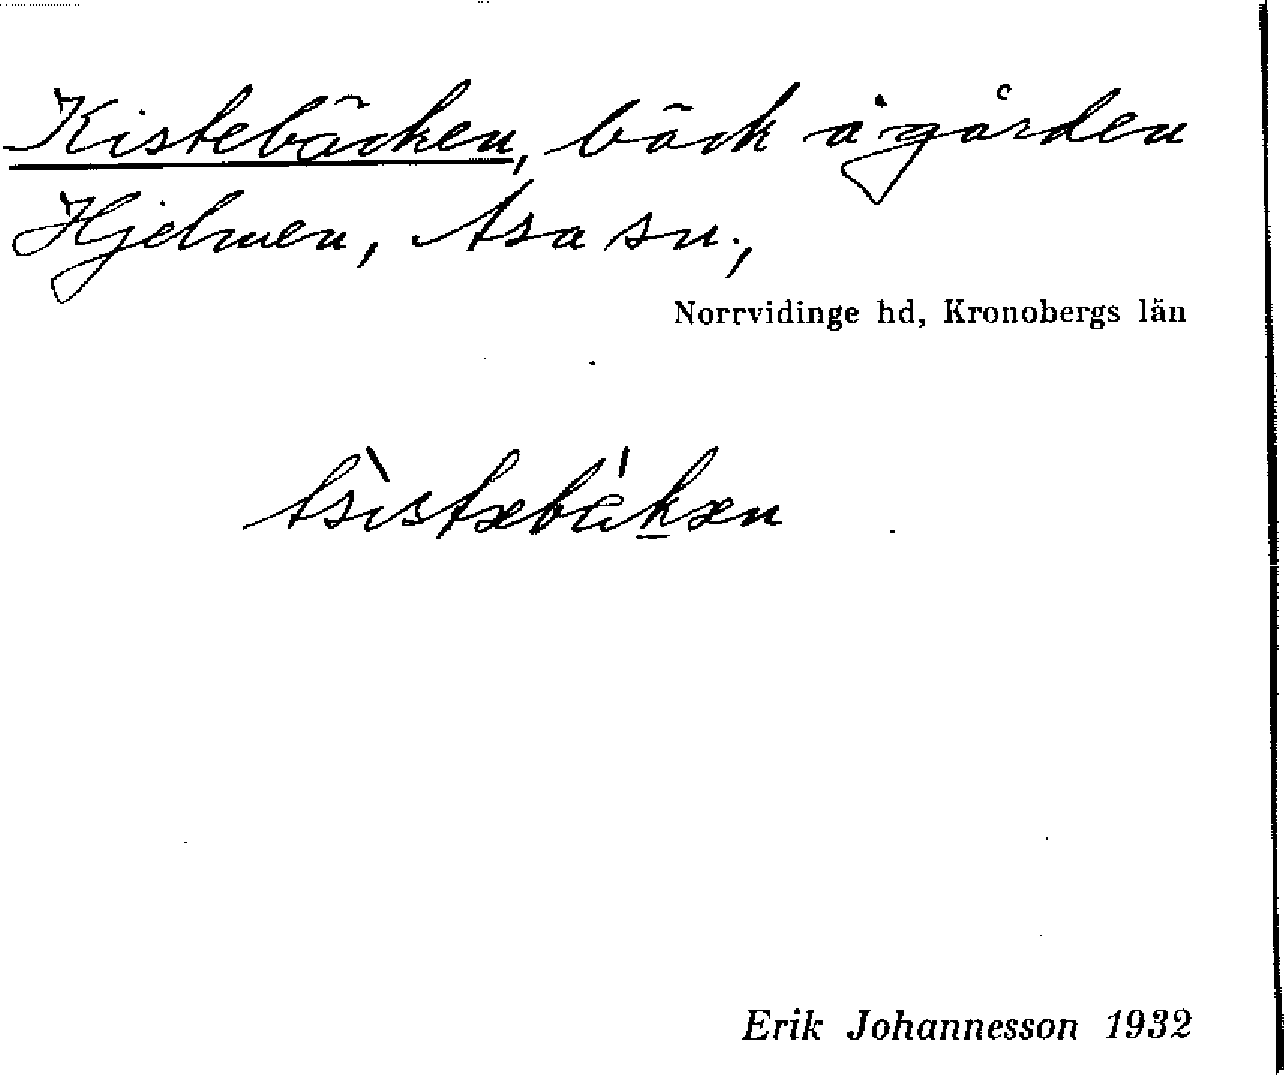 Kistebäcken, bäck å gården
Hjelmen, Asa sn.,
Norrvidinge hd, Kronobergs län
Erik Johannesson 1932